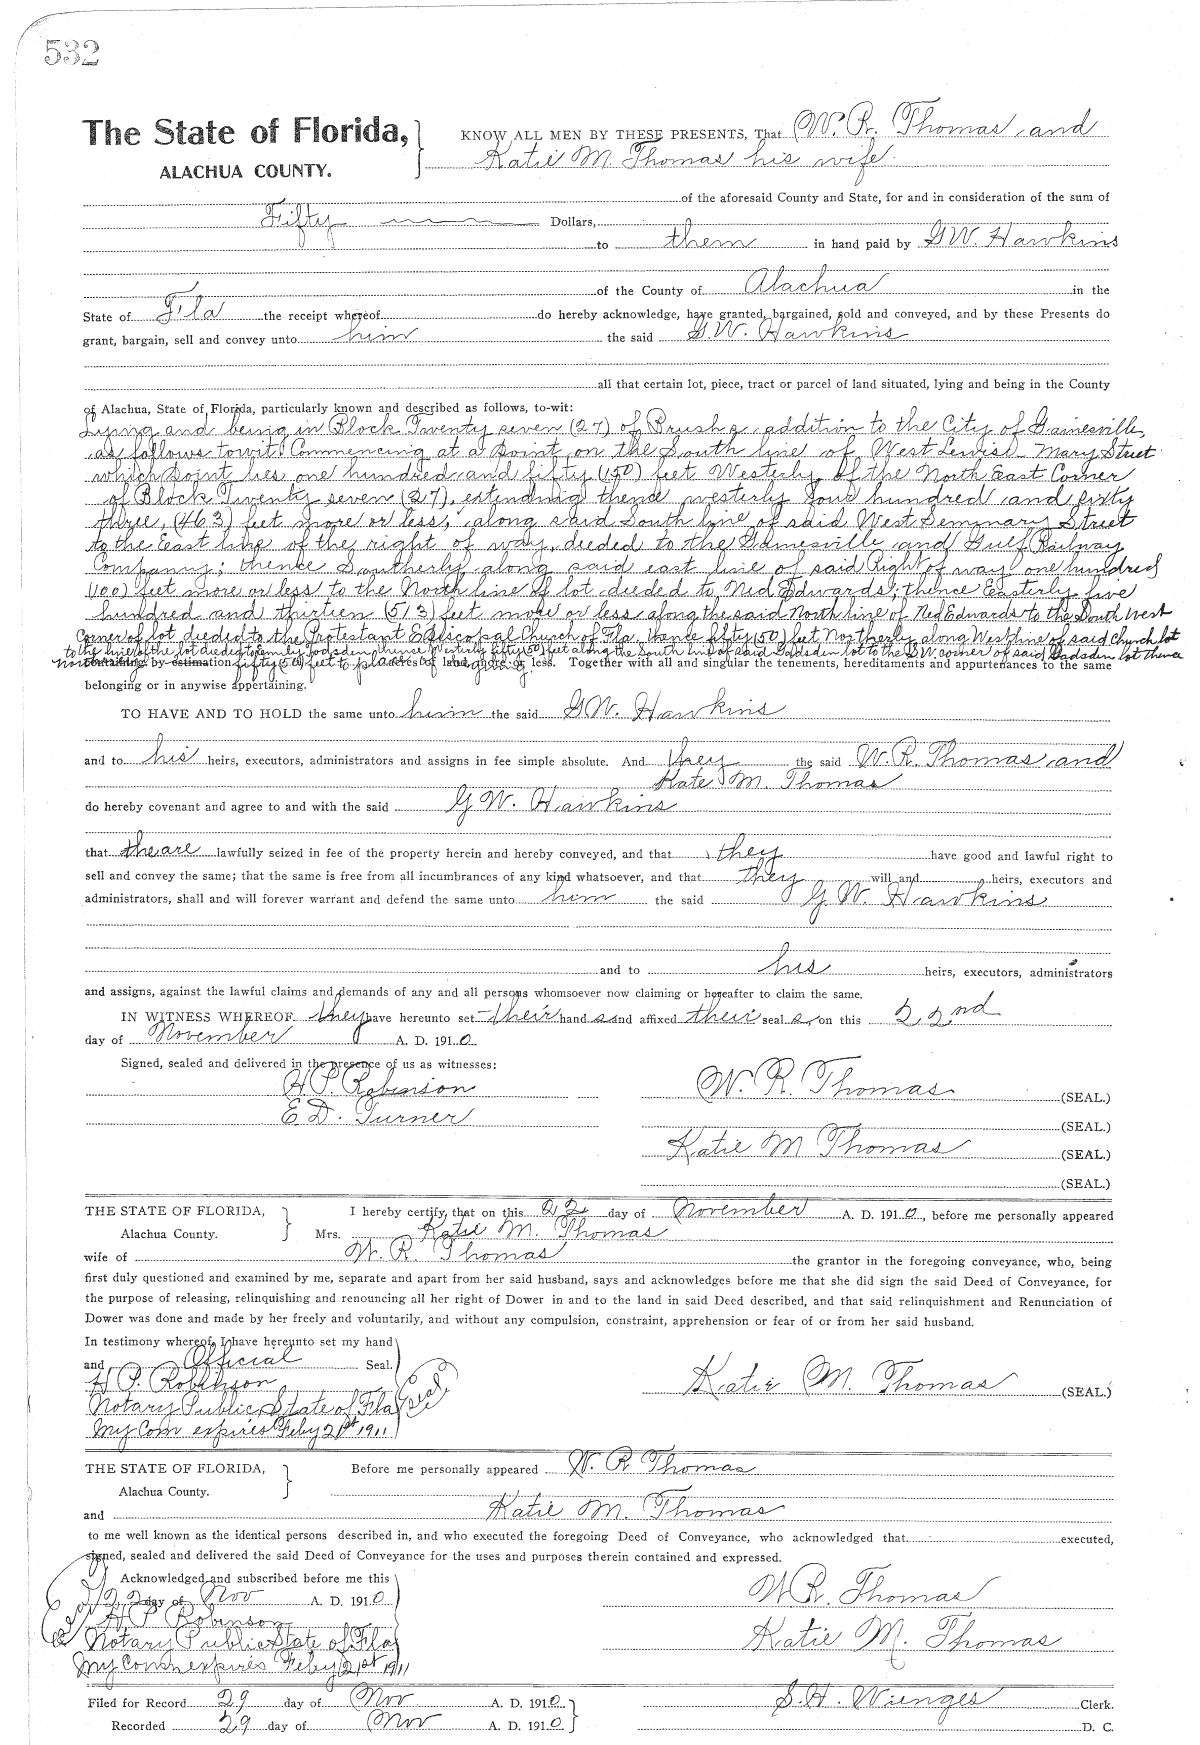 532
The State of Florida, KNOW ALL MEN BY THESE PRESENTS, That W. R. Thomas and
ALACHUA COUNTY. Katie M Thomas his wife
of the aforesaid County and State, for and in consideration of the sum of
Fifty Dollars,
to them in hand paid by G W. Hawkins
of the County of Alachua in the
State of Fla the receipt whereof do hereby acknowledge, have granted, bargained, sold and conveyed, and by these Presents do
grant, bargain, sell and convey unto him the said G. W. Hawkins
all that certain lot, piece, tract or parcel of land situated, lying and being in the County
of Alachua, State of Florida, particularly known and described as follows, to-wit:
Lying and being in Block Twenty seven (27) of Brushs addition to the City of Gainesville,
as follows towit: Commencing at a point on the South line of West Mary Street
which point lies one hundred and fifty (150) feet Westerly of the North East Corner
of Block Twenty seven (27), extending thence westerly four hundred and sixty
three, (463) feet more or less, along said South line of said West Seminary Street
to the East line of the right of way, deeded to the Gainesville and Gulf Railway
Company; thence Southerly along said east line of said Right of way one hundred
(100) feet more or less to the North line of lot deeded to Ned Edwards; thence Easterly five
hundred and thirteen (513) feet more or less along the said North line of Ned Edwards to the South West
Corner of lot deeded to the Protestant Episcopal Church of Fla. thence fifty (50) feet Northerly along West line of said Church lot
to the line of the lot deeded to Gadsden thence Westerly fifty (50) feet along the South line of said Gadsden lot to the SW. corner of said Gadsden lot thence
containing by estimation fifty (50) feet to place of land, more or less. Together with all and singular the tenements, hereditaments and appurtenances to the same
belonging or in anywise appertaining.
TO HAVE AND TO HOLD the same unto him the said G W. Hawkins
and to his heirs, executors, administrators and assigns in fee simple absolute. And they the said W. R. Thomas and
Kate M. Thomas
do hereby covenant and agree to and with the said G W. Hawkins
that the are lawfully seized in fee of the property herein and hereby conveyed, and that they have good and lawful right to
sell and convey the same; that the same is free from all incumbrances of any kind whatsoever, and that they will and heirs, executors and
administrators, shall and will forever warrant and defend the same unto him the said G W. Hawkins
and to his heirs, executors, administrators
and assigns, against the lawful claims and demands of any and all persons whomsoever now claiming or hereafter to claim the same.
IN WITNESS WHEREOF they have hereunto set their hand s and affixed their seal s, on this 22nd
day of November A. D. 1910.
Signed, sealed and delivered in the presence of us as witnesses:
H. P. Robinson W. R. Thomas (SEAL.)
E D. Turner (SEAL.)
Katie M Thomas (SEAL.)
(SEAL.)
THE STATE OF FLORIDA, I hereby certify, that on this 22 day of November A. D. 1910, before me personally appeared
Alachua County. Mrs. Katie M. Thomas
wife of W. R. Thomas the grantor in the foregoing conveyance, who, being
first duly questioned and examined by me, separate and apart from her said husband, says and acknowledges before me that she did sign the said Deed of Conveyance, for
the purpose of releasing, relinquishing and renouncing all her right of Dower in and to the land in said Deed described, and that said relinquishment and Renunciation of
Dower was done and made by her freely and voluntarily, and without any compulsion, constraint, apprehension or fear of or from her said husband.
In testimony whereof, I have hereunto set my hand
and Official Seal.
H P. Robinson Seal Katie M. Thomas (SEAL.)
Notary Public, State of Fla
My Com expires Feby 21st 1911
THE STATE OF FLORIDA, Before me personally appeared W. R Thomas
Alachua County.
and Katie M. Thomas
to me well known as the identical persons described in, and who executed the foregoing Deed of Conveyance, who acknowledged that executed,
signed, sealed and delivered the said Deed of Conveyance for the uses and purposes therein contained and expressed.
Acknowledged and subscribed before me this
Seal 22 day of Nov A. D. 1910 W R. Thomas
H P Robinson
Notary Public State of Fla Katie M. Thomas
My Comm expires Feby 21st 1911
Filed for Record 29 day of Nov A. D. 1910 S. H. Wienges Clerk.
Recorded 29 day of Nov A. D. 1910 D. C.